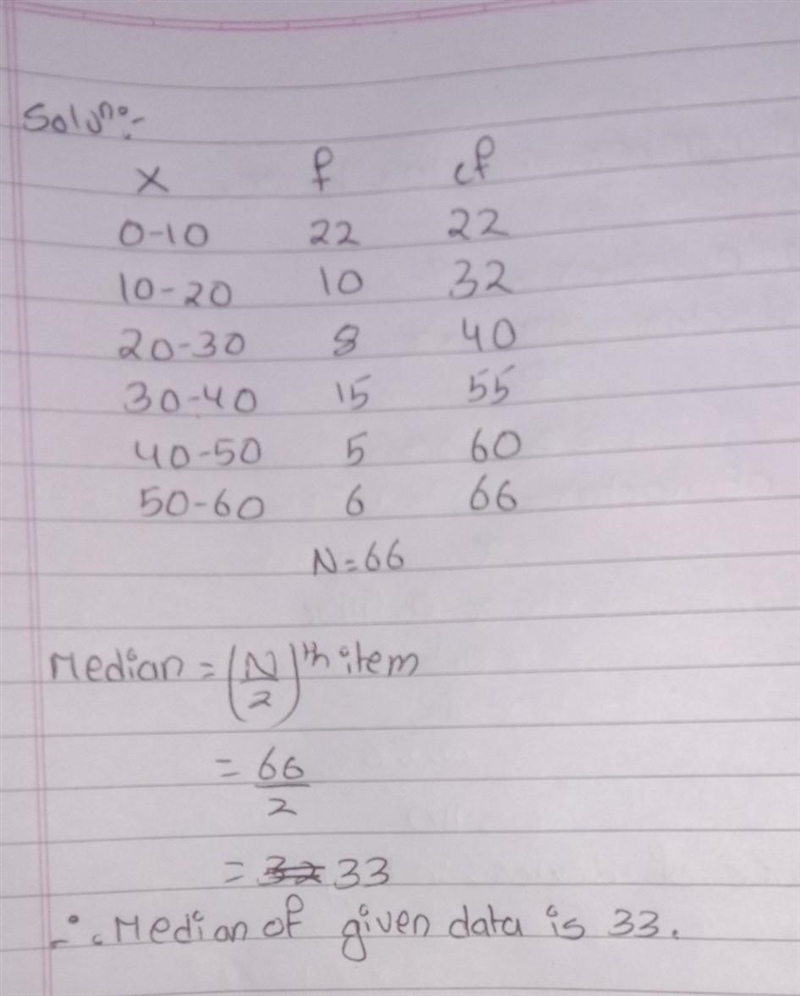 Soluⁿ:-
X f cf
0-10 22 22
10-20 10 32
20-30 8 40
30-40 15 55
40-50 5 60
50-60 6 66
N=66
Median = (N/2)th item
= 66/2
= 32 33
∴ Median of given data is 33.